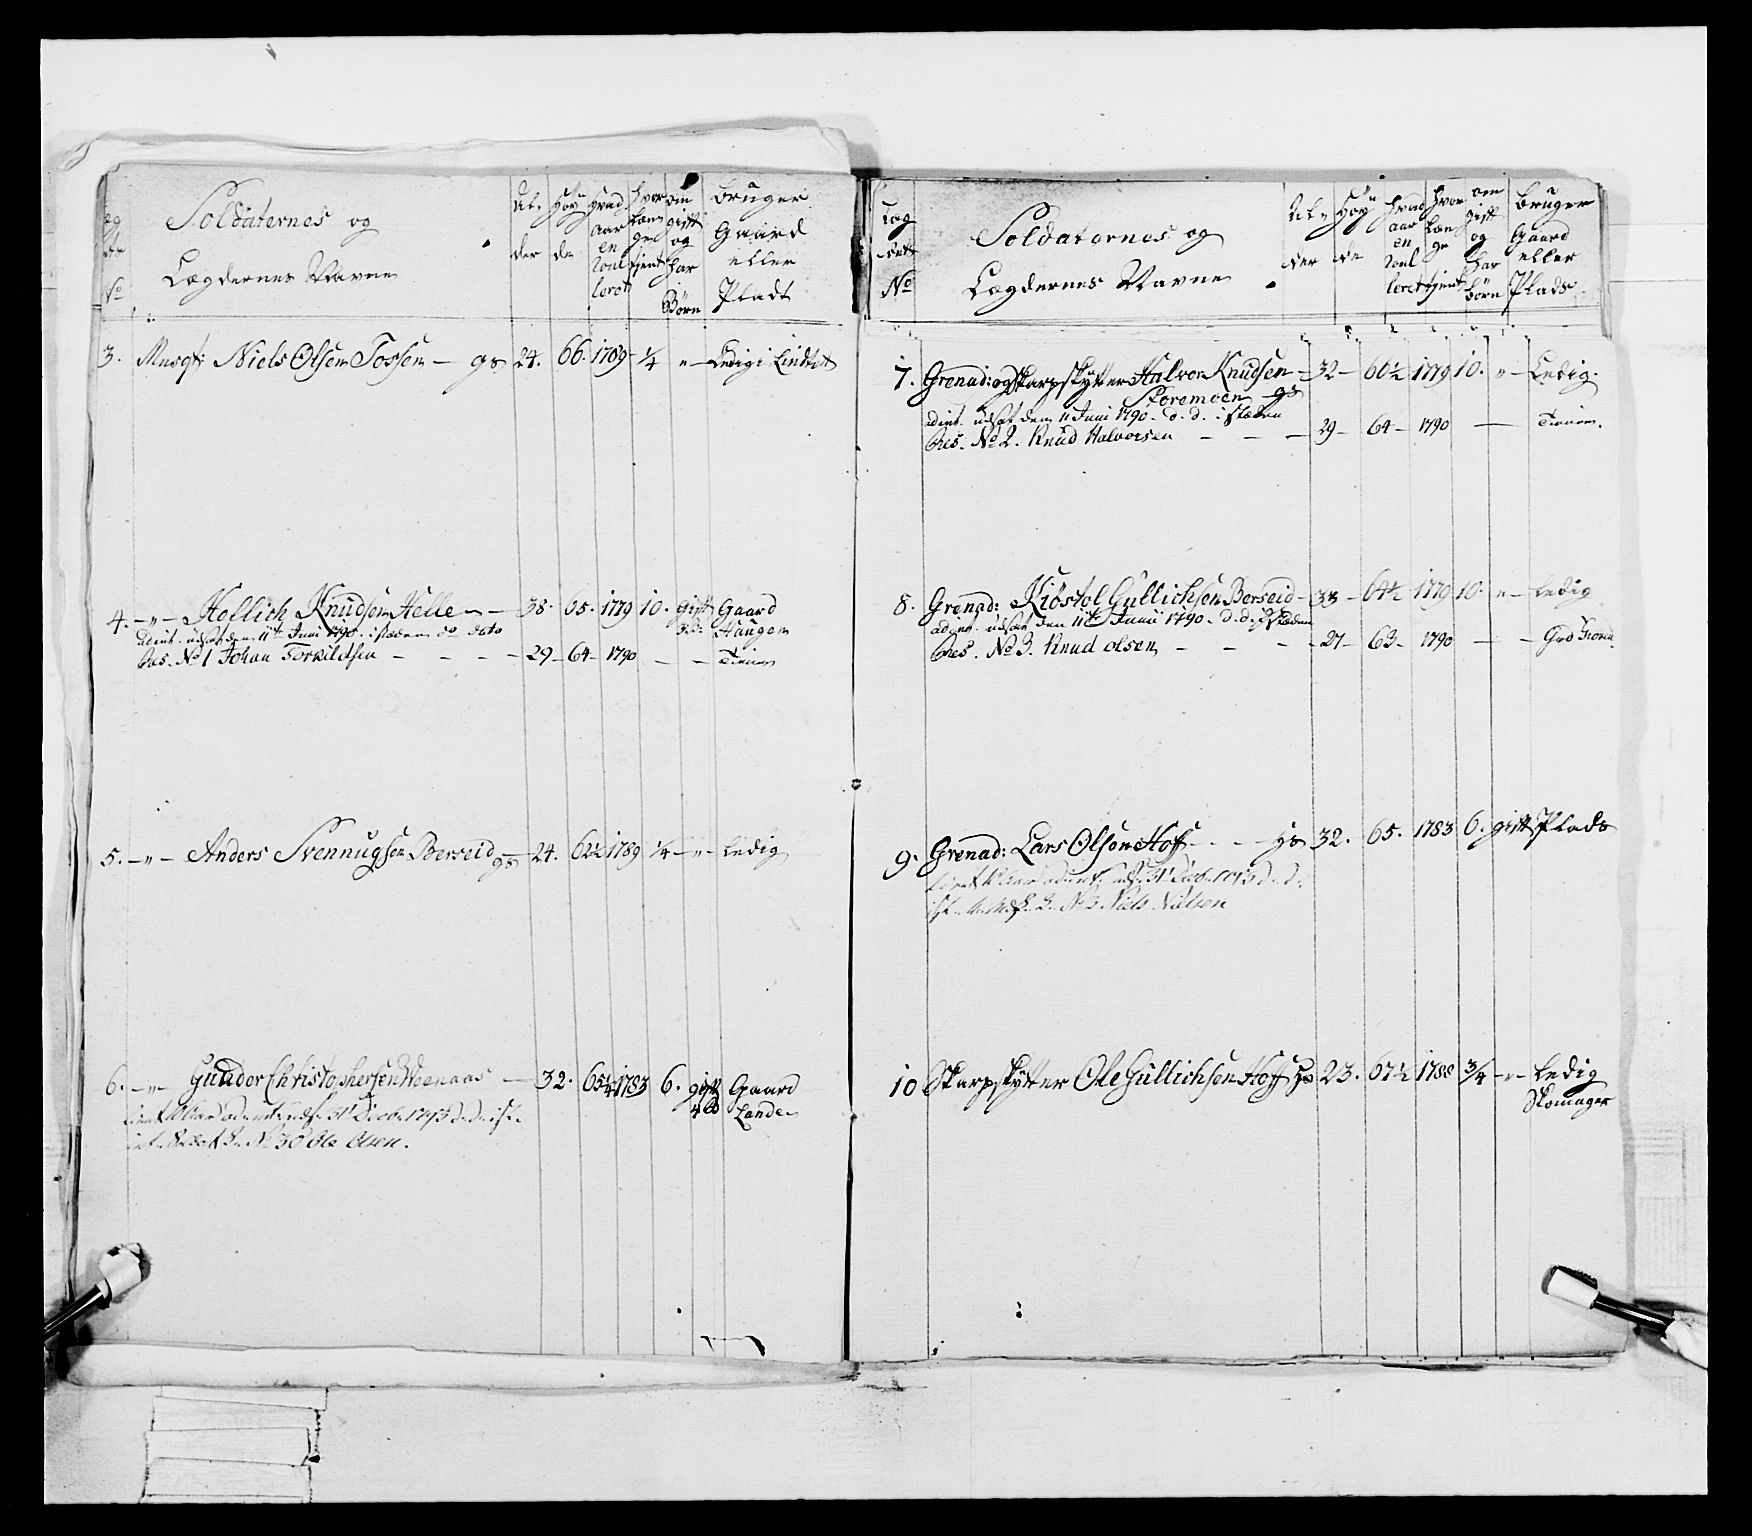 Soldaternes og
Lægdernes Navne
Al-
der
Høy-
de
hvad
aar
en
roul
leret
hvor
læn
ge
tjent
om
gift
og
har
Børn
bruger
Gaard
eller
Plads
No
3. Musqt: Niels Olsen Tossen — gs 24. 66. 1789 — 1/4 „ — Ledig i Lindtet
4. — „ — Hollich Knudsen Helle — 38. 65. 1779 10. gift Gaard
Haugen
adint. udsat den 11te Juni 1790. i stæden do dato
Res. No 1 Johan Torkildsen — — — 29 — 64 — 1790 — — Tienner
5. — „ — Anders Svennugsen Berseid gs — 24. 62 1/2 1789 1/4 — „ — ledig
6. — „ — Gunder Christophersen Weenaas — 32. 65 1/4 1783 6. gift Gaard
4 B Lande
10 Aar udsat 31 Decb. 1793 d. d. ist.
No 30 Ole Olsen.
Læg
dets
No
Soldaternes og
Lægdernes Navne
Al-
der
Høy-
de
hvad
aar
en
roul
leret
hvor
læn
ge
tjent
om
gift
og
har
börn
bruger
Gaard
eller
Plads
7. Grenad: og Skarpskytter Halvor Knudsen — 32 — 66 1/2 1779 10. „ — Ledig.
Storemoen gs
adint. udsat den 11 Juni 1790. d. d. i stæden
Res. No 2. Knud Halvorsen — — — 29 — 64 — 1790 — Tienner.
8. Grenad: Kiöstol Gullichsen Berseid — 33 — 64 1/2 1779 10. „ — ledig
adint. udsat den 11te Juni 1790. d. d. i stæden
Res. No 3. Knud olsen — — — 27 — 63 — 1790 — — Grd
9. Grenad: Lars Olsen Hoff — — — gs 32. 65. 1783 6. gift Plads
10 Aar udsat 31 Decb. 1793 d. d.
ist. No 3 Niels Nielsen
10 Skarpskytter Ole Gullichsen Hoff gs 23. 67 1/2 1788 3/4 — „ — ledig
Skomager